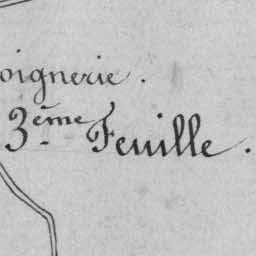 oignerie.
3.ème Feuille.